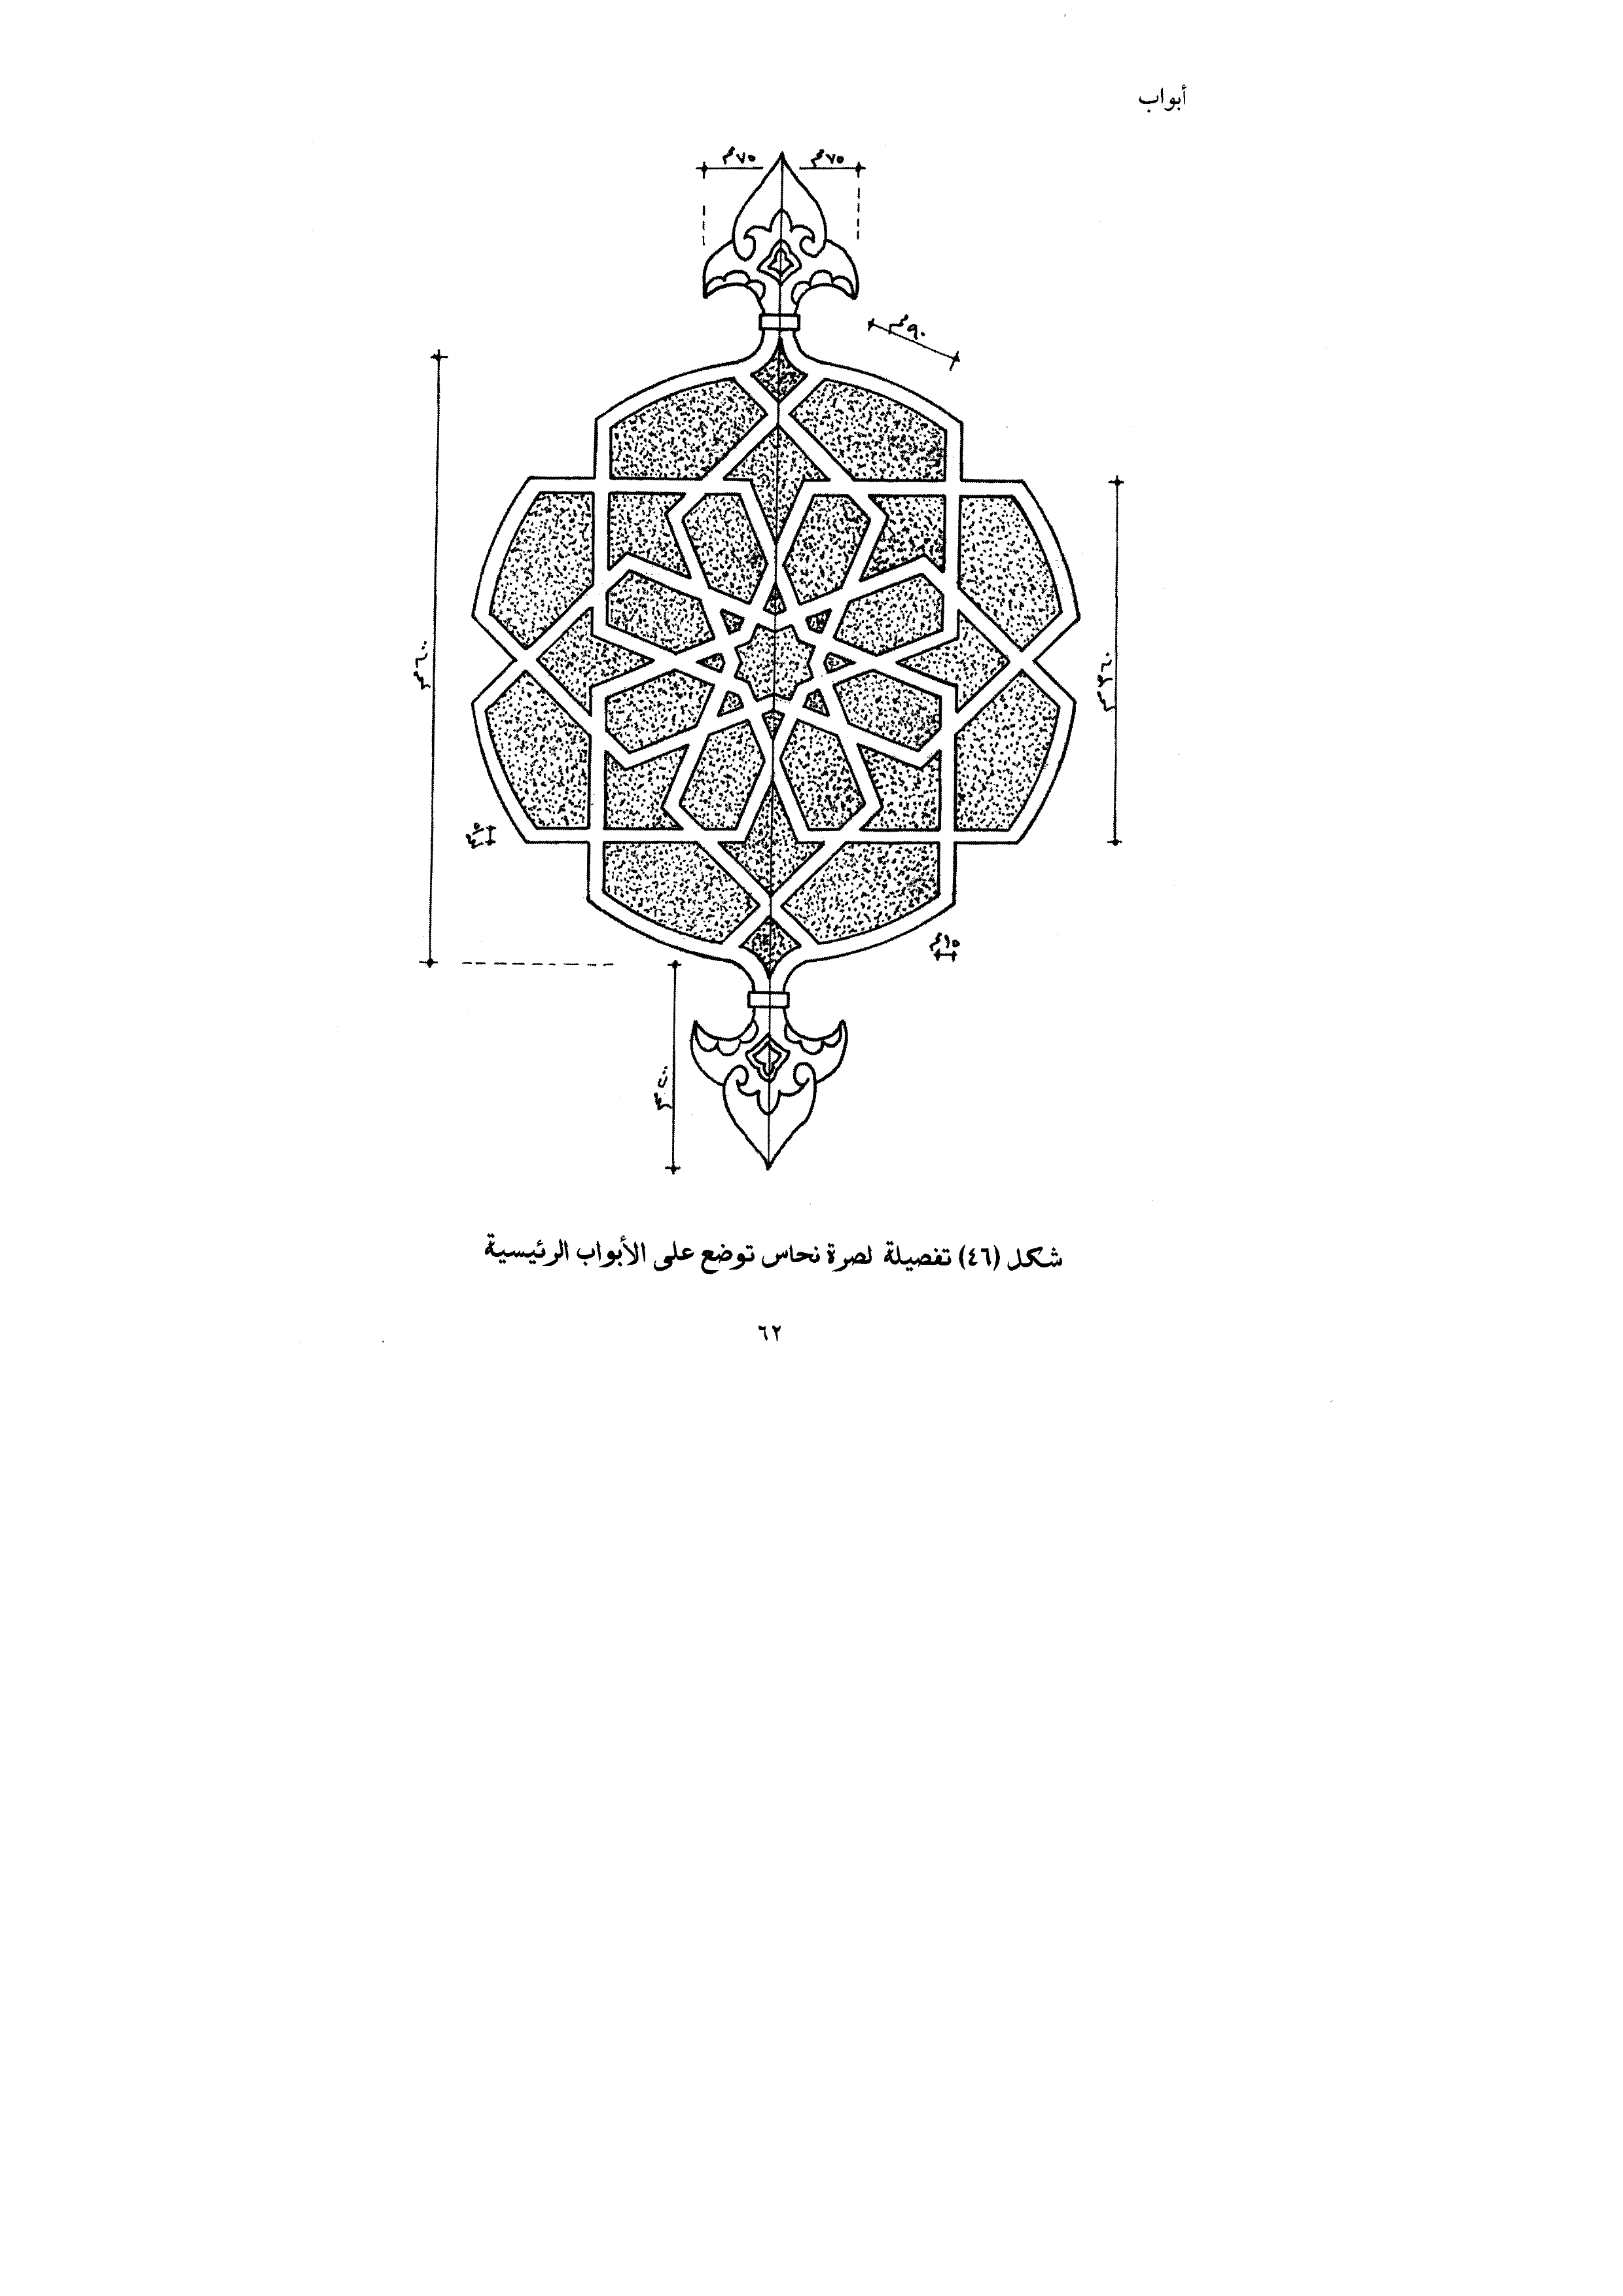 أبواب
٧٥مم ٧٥مم
٩٠مم
٦٠٠مم
٣٦٠مم
١٥مم
شكل (٤٦) تفصيلة لصرة نحاس توضع على الأبواب الرئيسية
٦٢